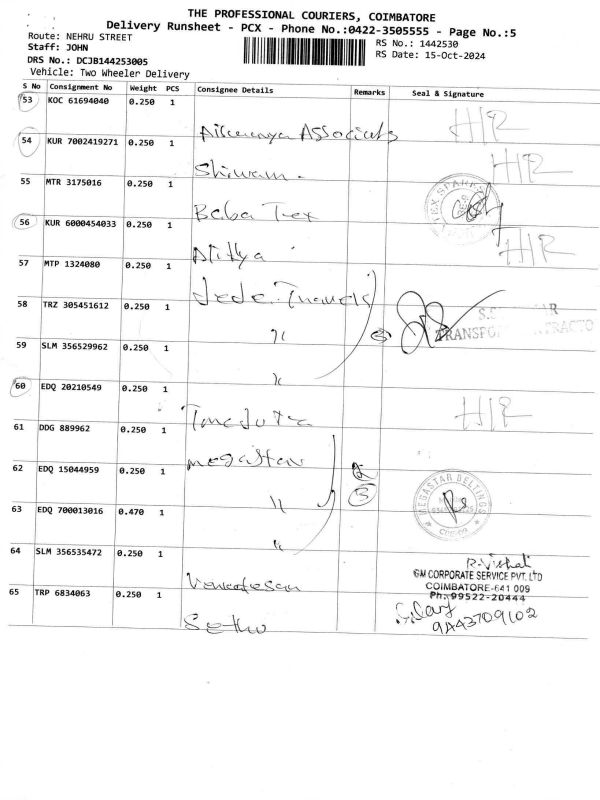 THE PROFESSIONAL COURIERS, COIMBATORE
Delivery Runsheet - PCX - Phone No.:0422-3505555 - Page No.:5
Route: NEHRU STREET
Staff: JOHN
DRS No.: DCJB144253005
Vehicle: Two Wheeler Delivery
RS No.: 1442530
RS Date: 15-Oct-2024
S No Consignment No Weight PCS Consignee Details Remarks Seal & Signature
53 KOC 61694040 0.250 1 Associates H/R
54 KUR 7002419271 0.250 1 Shiwam. H/R
55 MTR 3175016 0.250 1 Baba Tex TEX SPARES
56 KUR 6000454033 0.250 1 Nithya H/R
57 MTP 1324080 0.250 1 Jede Travels
58 TRZ 305451612 0.250 1 " 3 S.S TRANSPO
59 SLM 356529962 0.250 1 "
60 EDQ 20210549 0.250 1 H/R
61 DDG 889962 0.250 1 megastar
62 EDQ 15044959 0.250 1 " 3 MEGASTAR BELTINGS
63 EDQ 700013016 0.470 1 "
64 SLM 356535472 0.250 1 Venkatesan R. Vishali
GM CORPORATE SERVICE PVT. LTD
COIMBATORE-641 009
Ph: 99522-20444
65 TRP 6834063 0.250 1 Sethu
9443709102